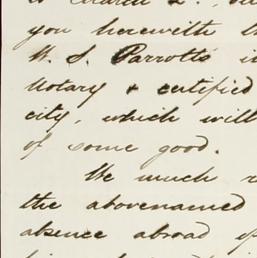 you herewith
Parrotts
Notary & certified
city, which will
of some good.
We much
the abovenamed
absence abroad of